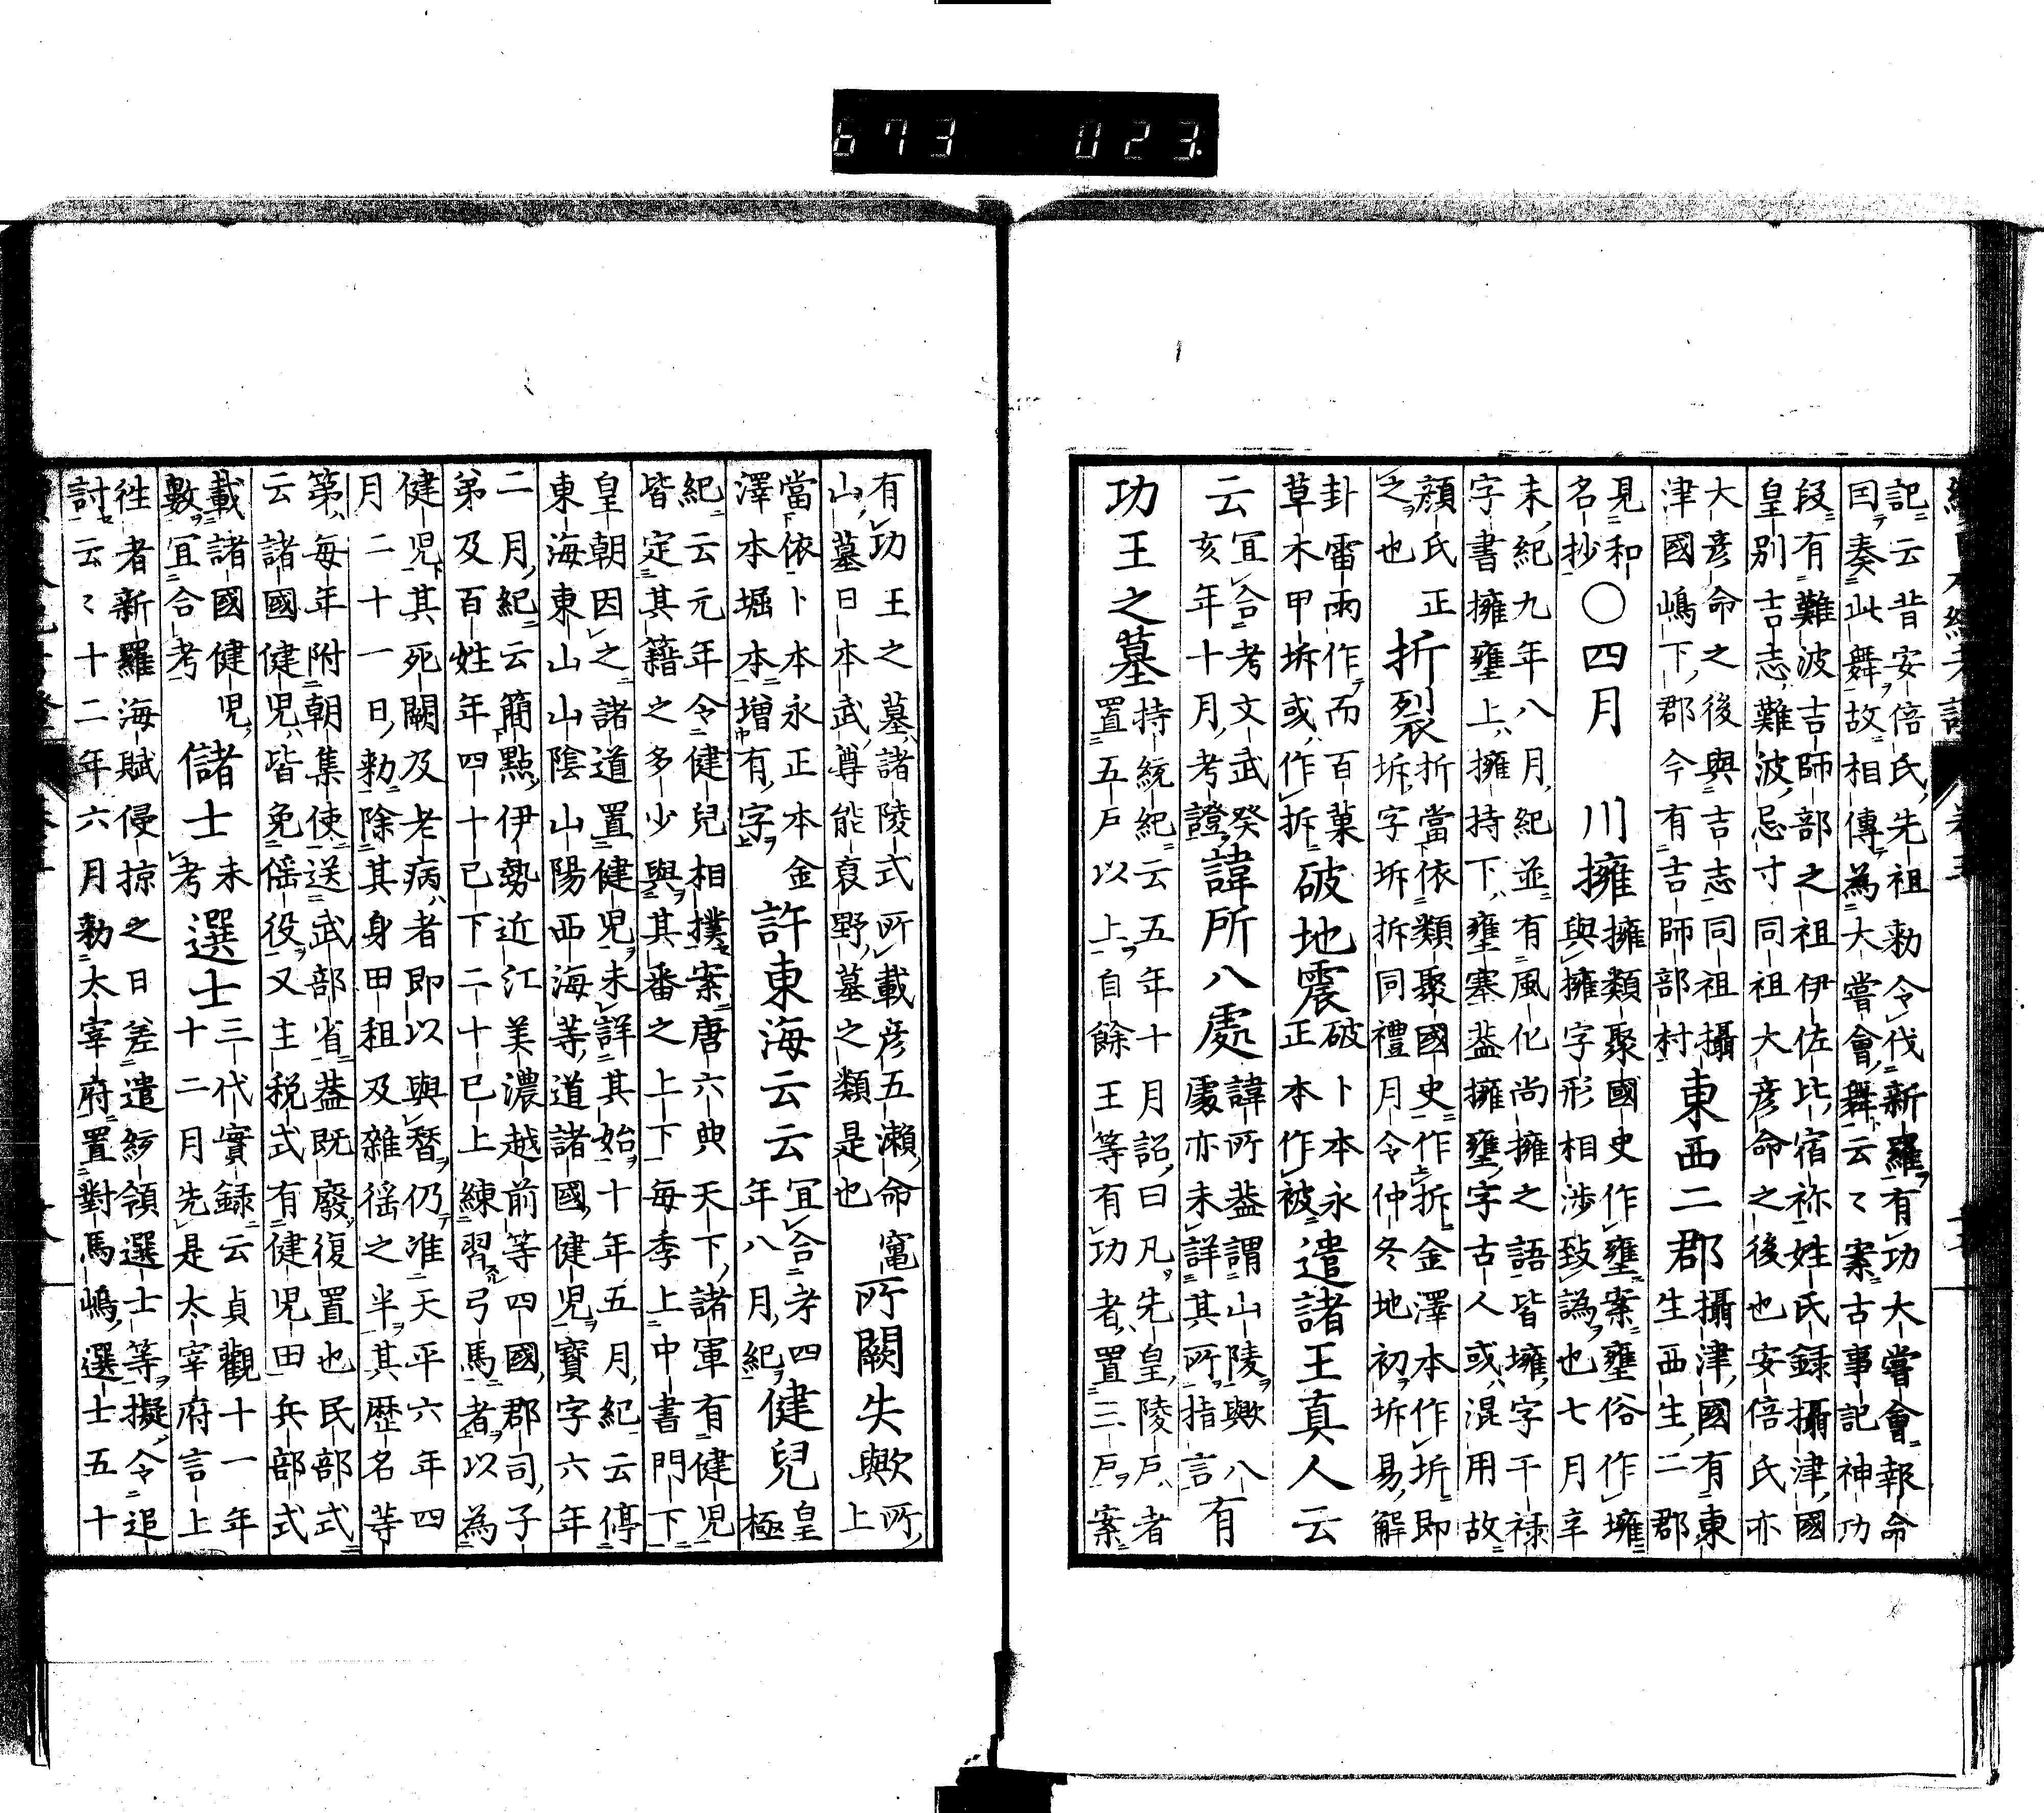 673 023
記云昔安倍氏先祖勅令伐新羅有功大嘗會報命
曰奏此舞故相傳為大嘗會舞云〻案古事記神功
段有難波吉師部之祖伊佐比宿祢姓氏録攝津國
皇別吉志難波忌寸同祖大彦命之後也安倍氏亦
大彦命之後與吉志同祖攝
津國嶋下郡今有吉師部村
東西二郡
攝津國有東
生西生二郡
見和
名抄
〇四月 川擁
擁類聚國史作壅案壅俗作擁
與擁字形相渉致譌也七月辛
未紀九年八月紀並有風化尚擁之語皆擁字干禄
字書擁壅上擁持下壅塞盖擁壅字古人或混用故
顔氏正
之也
折裂
折當依類聚國史作拆金澤本作坼即
坼字坼拆同禮月令仲冬地初坼易解
卦雷雨作而百菓
草木甲坼或作拆
破地震
破卜本永
正本作被
遣諸王真人云
云
宜合考文武癸
亥年十月考證
諱所八處
諱所盖謂山陵歟八
處亦未詳其所指言
有
功王之墓
持統紀云五年十月詔曰凡先皇陵戸者
置五戸以上自餘王等有功者置三戸案
有功王之墓諸陵式所載彦五瀬命竃
山墓日本武尊能裒野墓之類是也
所闕失歟
所
上
當依卜本永正本金
澤本堀本増有字
許東海云云
宜合考四
年八月紀
健兒
皇
極
紀云元年令健兒相撲案唐六典天下諸軍有健児
皆定其籍之多少與其番之上下每季上中書門下
皇朝因之諸道置健児未詳其始十年五月紀云停
東海東山山陰山陽西海等道諸國健児寶字六年
二月紀云簡點伊勢近江美濃越前等四國郡司子
弟及百姓年四十已下二十已上練習弓馬者以為
健児其死闕及老病者即以與替仍准天平六年四
月二十一日勅除其身田租及雜徭之半其歴名等
第每年附朝集使送武部省盖既廢復置也民部式
云諸國健児皆免徭役又主税式有健児田兵部式
載諸國健児
數宜合考
儲士
未
考
選士
三代實録云貞觀十一年
十二月先是太宰府言上
徃者新羅海賊侵掠之日差遣統領選士等擬令追
討云〻十二年六月勅大宰府置對馬嶋選士五十